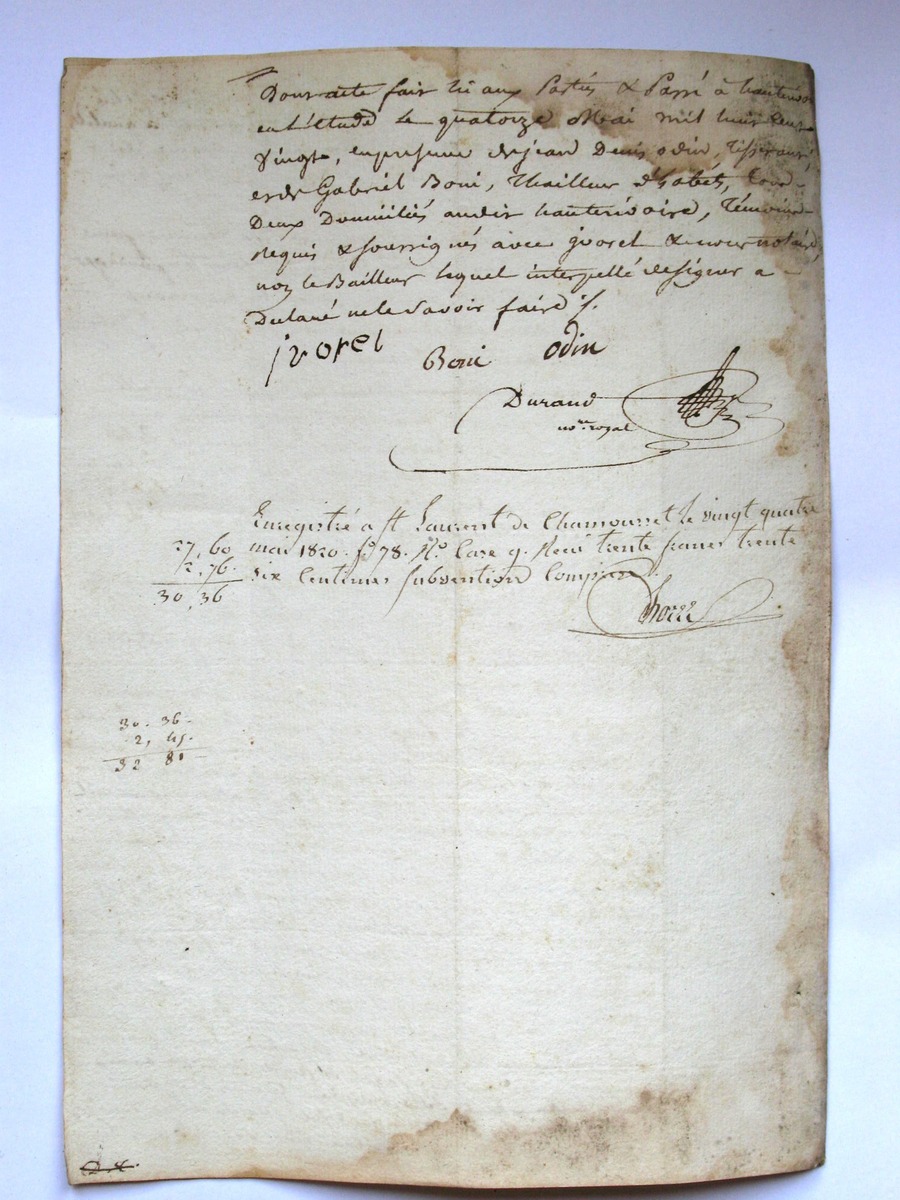 Dont acte fait lû aux Parties & Passé à hauterivoire
en l'étude le quatorze Mai mil huit cent
Vingt, en presence de jean Denis odin, Tisserant,
et de Gabriel Boni, Thailleur d'habits, tous
Deux Domiciliés audit hauterivoire, Témoins
Requis & soussignés avec jvorel & nous notaire,
non le Bailleur lequel interpellé de signer a
Declaré ne le savoir faire ./.
jvorel Boni odin
Durand
no.re royal
Enregistré a St Laurent de Chamousset le vingt quatre
mai 1820. fo 78. Ro. Case 9. Recu trente francs trente
six Centimes subvention Comprise.
27, 60
2, 76.
30, 36
30. 36.
2, 45.
32 81